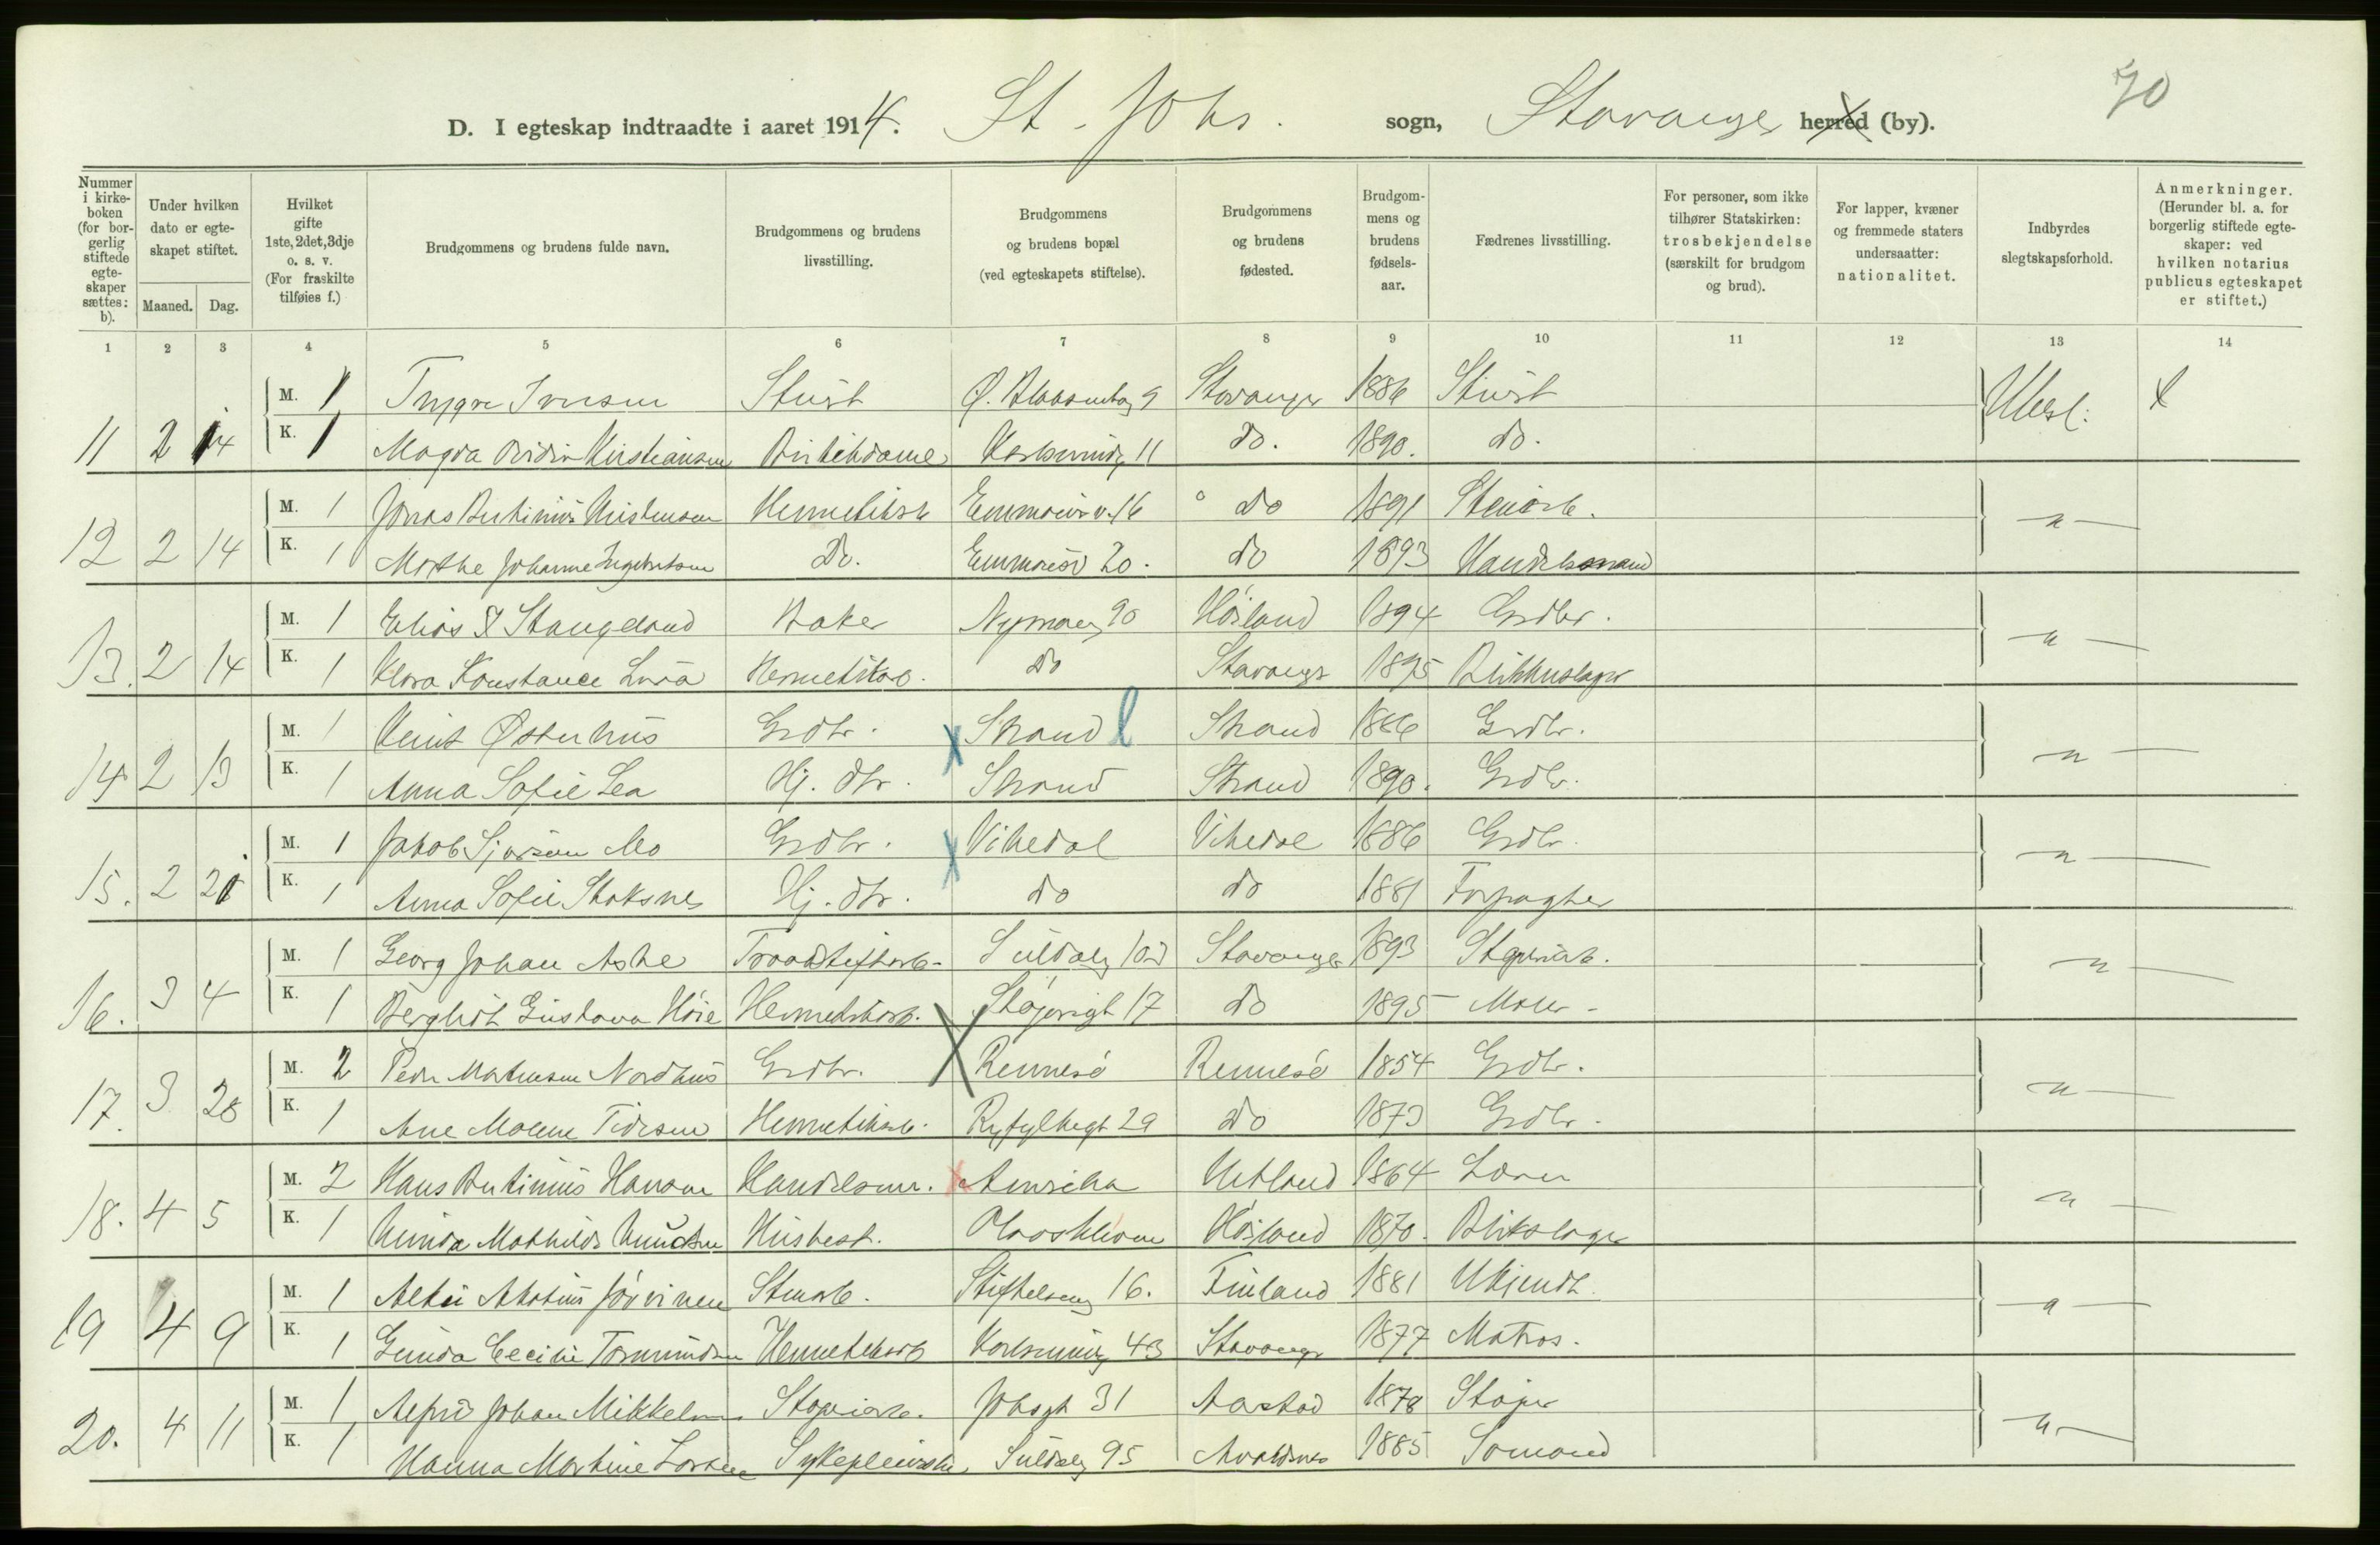 70
D. I egteskap indtraadte i aaret 1914. St. Johs. sogn, Stavanger herred (by).
Nummer i kirkeboken (for borgerlig stiftede egteskaper sættes: b).
Under hvilken dato er egteskapet stiftet.
Maaned. Dag.
Hvilket gifte 1ste, 2det, 3dje o. s. v. (For fraskilte tilføies f.)
Brudgommens og brudens fulde navn.
Brudgommens og brudens livsstilling.
Brudgommens og brudens bopæl (ved egteskapets stiftelse).
Brudgommens og brudens fødested.
Brudgommens og brudens fødselsaar.
Fædrenes livsstilling.
For personer, som ikke tilhører Statskirken: trosbekjendelse (særskilt for brudgom og brud).
For lapper, kvæner og fremmede staters undersaatter: nationalitet.
Indbyrdes slegtskapsforhold.
Anmerkninger. (Herunder bl. a. for borgerlig stiftede egteskaper: ved hvilken notarius publicus egteskapet er stiftet.)
1 2 3 4 5 6 7 8 9 10 11 12 13 14
M. 1 Trygve Iversen 9 Stavanger 1886 Ubesl:
11 2 14 K. 1 Magda Kristiansen 11 do. 1890. do.
M. 1 Jonas Bertinius Kristensen Hermetikarb 16 do 1891
12 2 14 K. 1 Marthe Johanne Ingebretsen Do. 20. do 1893 Handelsmand
M. 1 Elias Stangeland Baker 90 Höiland 1894 Grdbr.
13. 2 14 K. 1 Klara Konstance Hermetikarb. do Stavanger 1895 Blikkenslager
M. 1 Østerhus Grdbr. Strand Strand Grdbr.
14 2 13 K. 1 Anna Sofie Lea Hj. dtr. Strand Strand 1890. Grdbr.
M. 1 Jakob Mo Grdbr. Vikedal Vikedal 1886 Grdbr.
15. 2 21 K. 1 Anna Sofie Stoksnes Hj. dtr. do do 1881 Forpagter
M. 1 Georg Johan Aske Suldalg Stavanger 1893
16. 3 4 K. 1 Berghit Gustava Höie Hermetikarb. 17 do 1895 Maler
M. 2 Peder Mortensen Nordhus Grdbr. Rennesö Rennesö 1854 Grdbr.
17. 3 28 K. 1 Ane Malene Tidesen Hermetikarb. Ryfylkegt 29 do 1873 Grdbr.
M. 2 Hans Bertinius Hansen Handelsm. Amerika Hetland 1864
18. 4 5 K. 1 Mathilde Knudsen Husbest. Höiland 1870. Blikslager
M. 1 Järvinen Stenarb. Stiftelsesg 16. Finland 1881 Ukjendt.
19 4 9 K. 1 Gunda Cecilie Tormundsen Hermetikarb 43 Stavanger 1877 Matros.
M. 1 Alfred Johan Mikkelsen Johsgt 31 1878 Støper
20. 4 11 K. 1 Hanna Martine Larsen Sykepleierske Suldalg 95 Avaldsnes 1885 Sömand